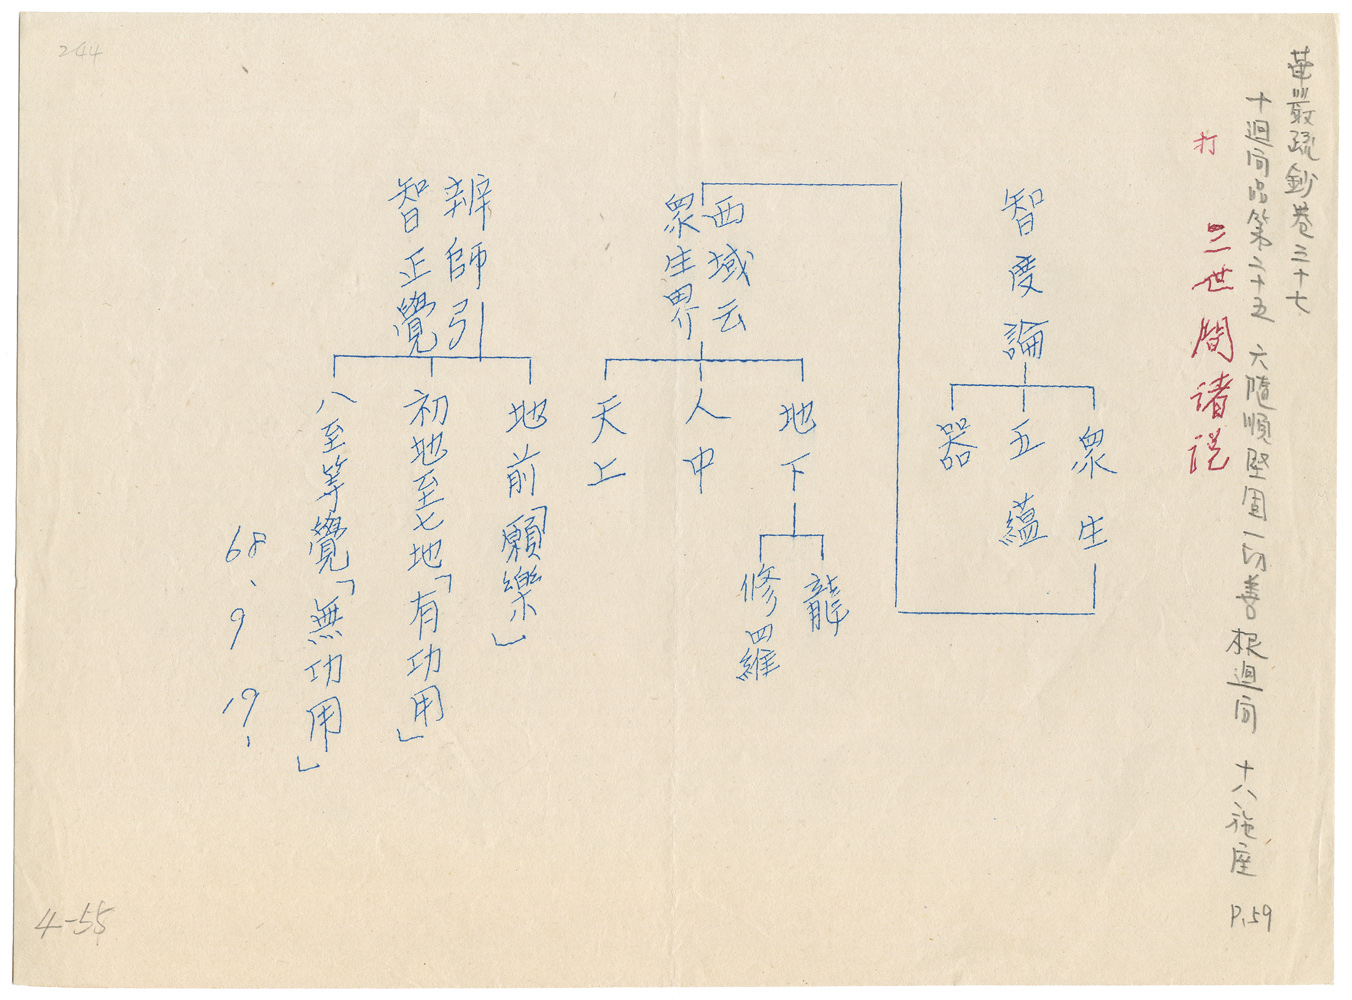 華嚴疏鈔卷三十七
十迴向品第二十五 六隨順堅固一切善根迴向 十八施座 P.59
打 三世間諸說
智度論
眾生
五蘊
器
西域云
眾生界
地下
龍
修羅
人中
天上
辨師引
智正覺
地前「願樂」
初地至七地「有功用」
八至等覺「無功用」
68、9、19、
244
4-55